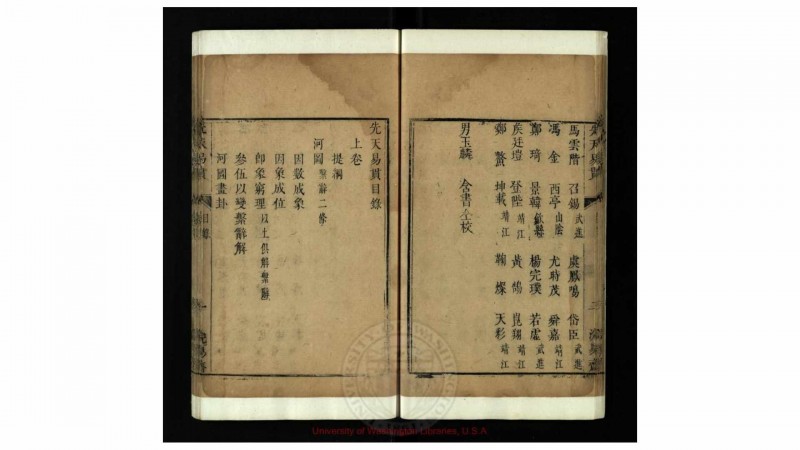 先天易貫
馬雲階 召錫 武進 虞鳳鳴 岱臣 武進
馮金 西亭 山陰 尤時茂 舜嘉 靖江
鄭琦 景韓 歙縣 楊完璞 若虛 武進
矦廷瑄 登陛 靖江 黃鵠 崑翔 靖江
鄭鰲 坤載 靖江 鞠燦 天彩 靖江
男玉麟 仝書仝校
先天易貫目錄
上卷
提綱
河圖 繫辭二條
因數成象
因象成位
卽象窮理 以上俱解繫辭
參伍以變繫辭解
河圖畫卦
目錄
一
University of Washington Libraries, U.S.A